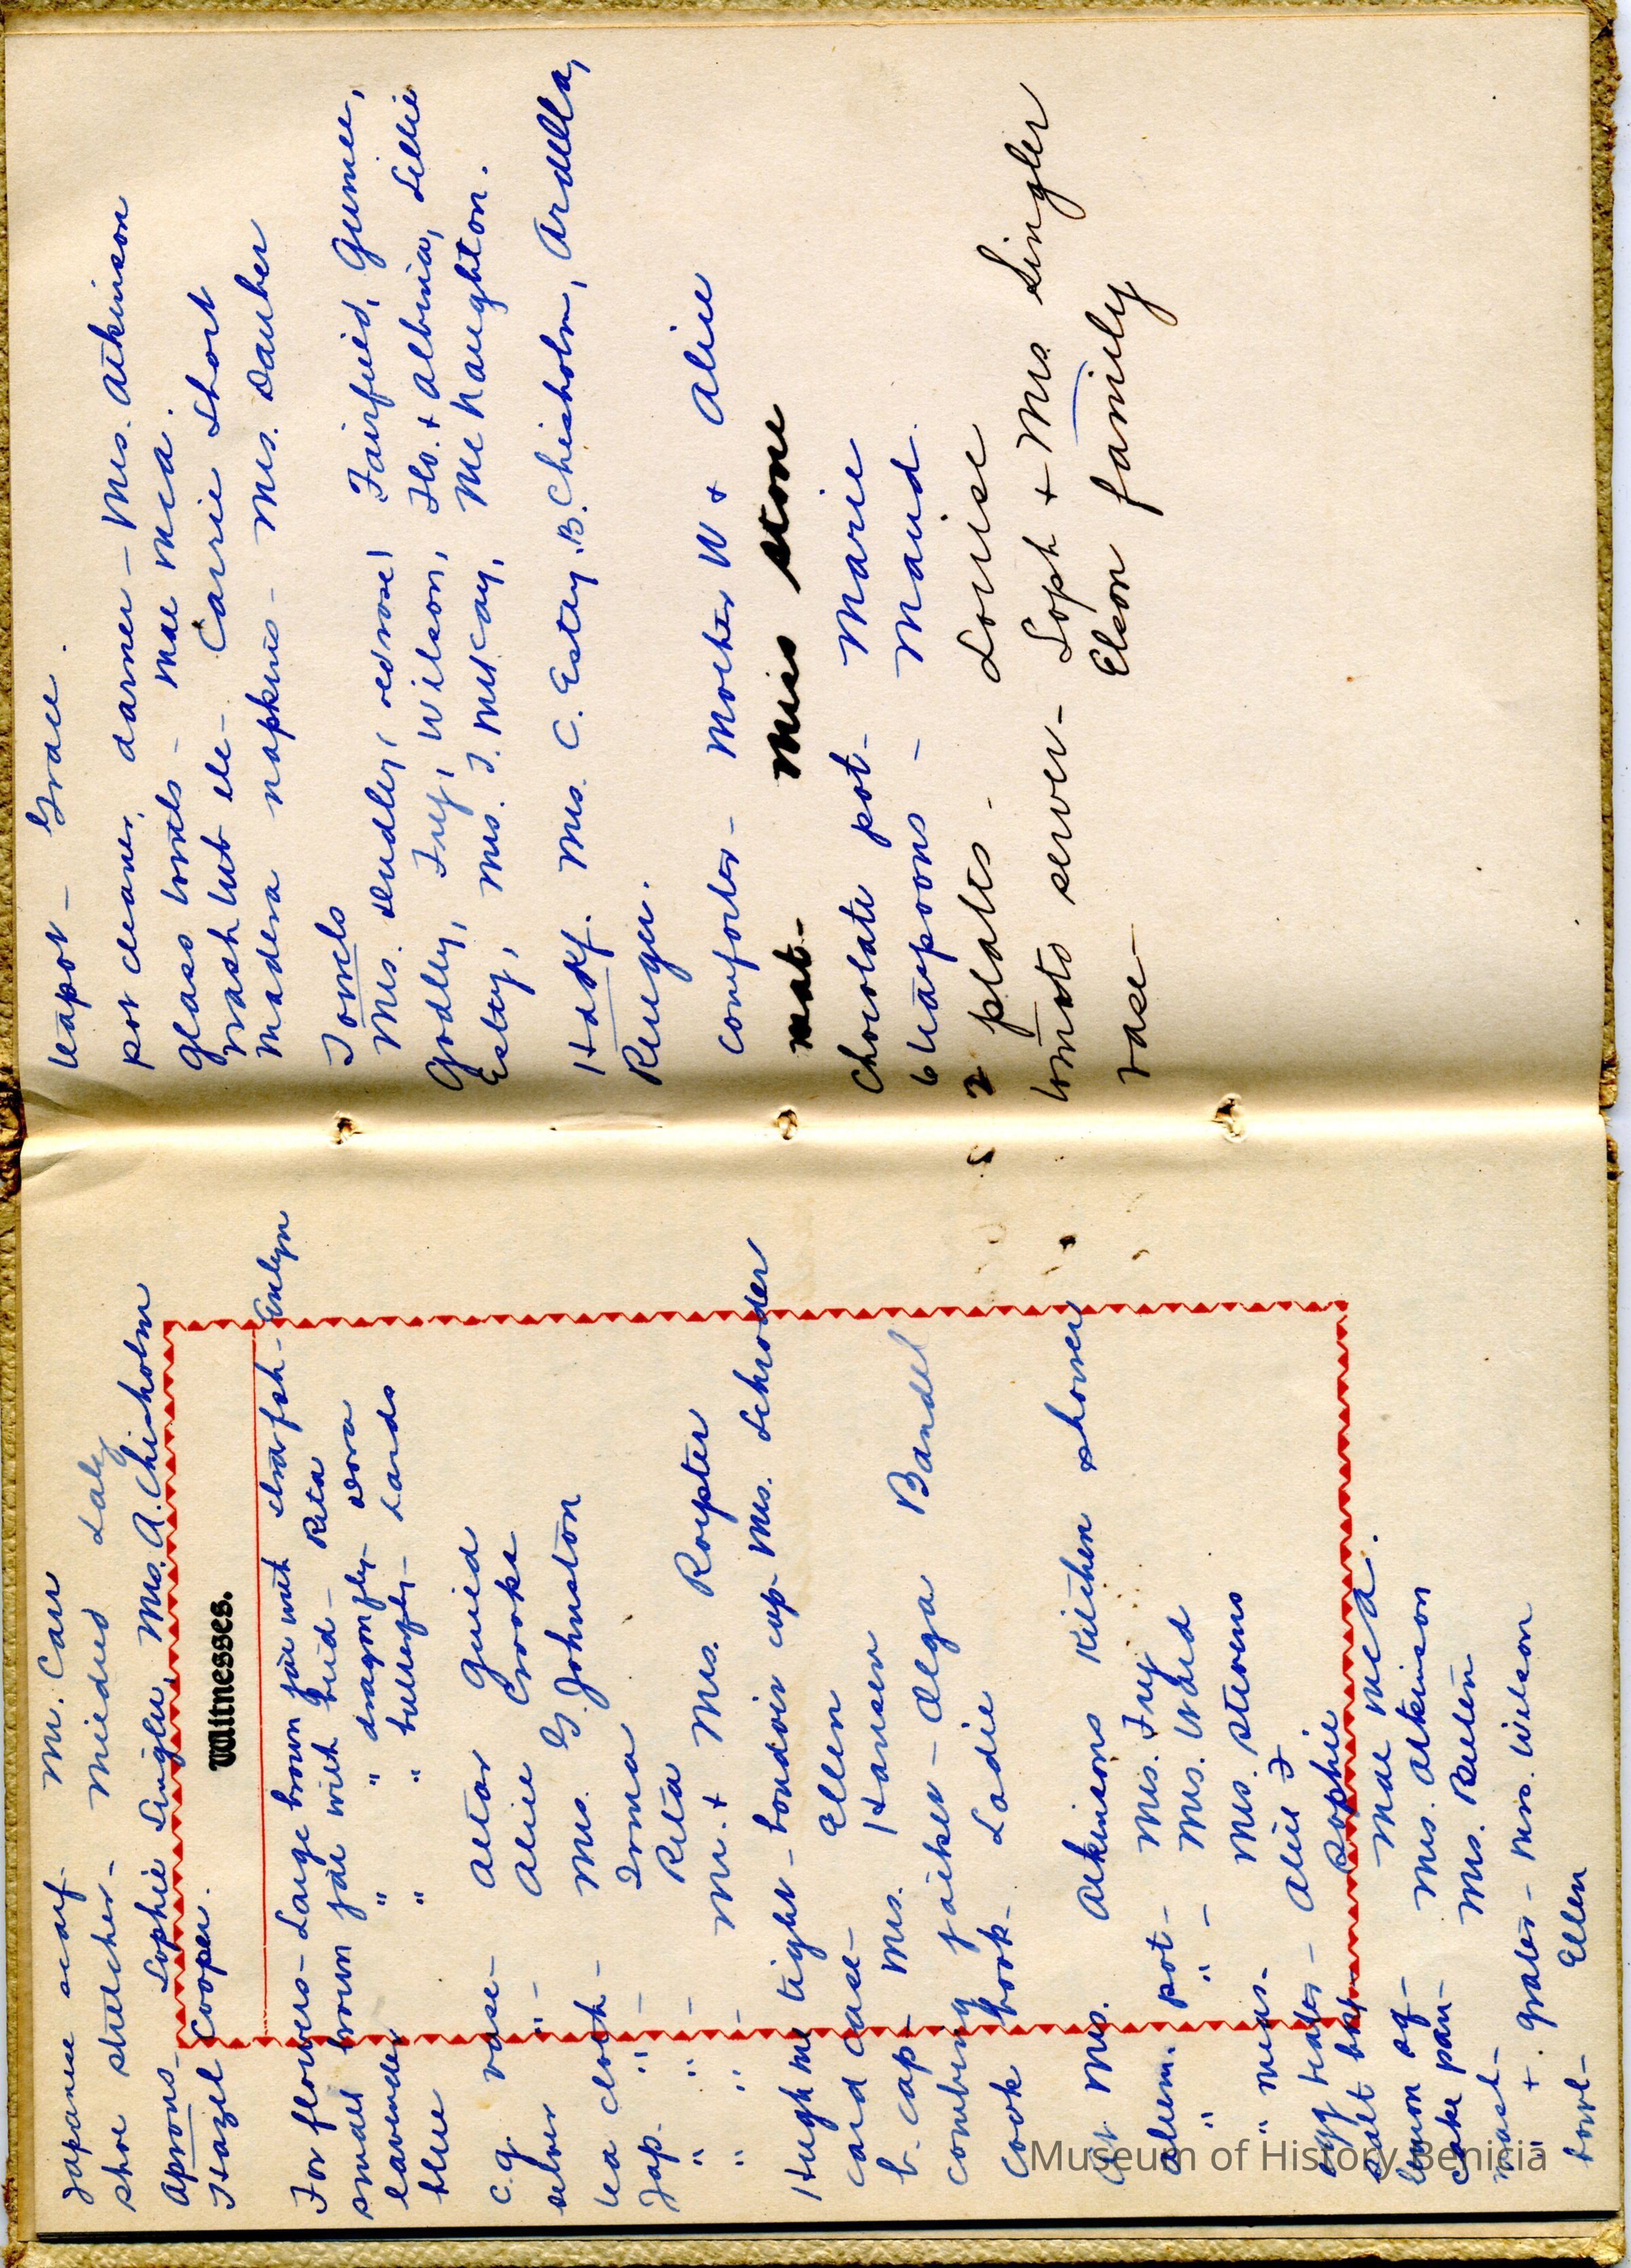 Japanese scarf - Mr. Carr
shoe stretcher - Mildred Daly
Aprons - Sophie Singler, Mrs. A. Chisholm
Hazel Cooper.
Witnesses.
For flowers - Large brown jar with crawfish - Evelyn
small brown jar with bud - Rita
lavender " " dragonfly - Dora
blue " " butterfly - Sands
c.g. vase - Altar Guild
silver " - Alice Crooks
tea cloth - Mrs. G. Johnston
Jap. " - Irma
" " - Rita
" " - Mr. + Mrs. Roepter
Hug me tight - boudoir cap - Mrs. Schroder
card case - Ellen
b. cap - Mrs. Hansen
combing jacket - Olga Bandel
Cook book - Sadie
At Mrs. Atkinsons Kitchen shower
alum. pot - Mrs. Frey
" " - Mrs. Ward
" meas. - Mrs. Stevens
egg beater - Alice F
salt box - Sophie
lemon sq - Mae McA.
cake pan - Mrs. Atkinson
mash - Mrs. Pallen
" + grater - Mrs. Wilson
bowl - Ellen
teapot - Grace.
pot cleaner, darner - Mrs. Atkinson
glass towels - Mae McA.
wash tub etc - Carrie Short
Madera napkins - Mrs. Dauber
Towels
Mrs. Dudley, (red rose) Fairfield, Gunnee,
Godley, Frey, Wilson, Flo. + Albina, Lillie
Estey, Mrs. J. McKay, McNaughton.
Hdkf. Mrs. C. Estey, B. Chisholm, Ardella,
Kruger.
comforter - Mother W + Alice
mat - Miss Stone
Chocolate pot - Marie
6 teaspoons - Maud.
2 plates - Louise
tomato server - Soph + Mrs Singler
vase - Elson family
Museum of History Benicia